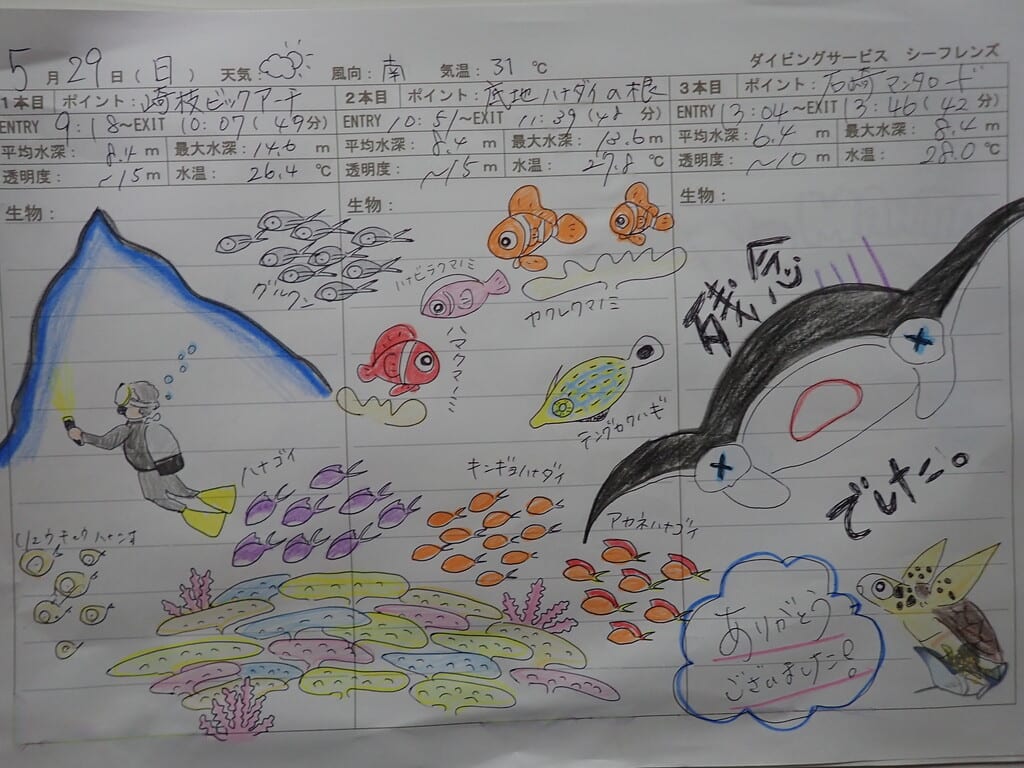 ダイビングサービス　シーフレンズ
5月29日(日)　天気:　風向:南　気温:31℃
1本目　ポイント:崎枝ビックアーチ
ENTRY 9:18〜EXIT 10:07(49分)
平均水深:8.4m　最大水深:14.6m
透明度:~15m　水温:26.4℃
生物:
グルクン
ハナゴイ
リュウキュウハナゴイ
2本目　ポイント:底地ハナダイの根
ENTRY 10:51〜EXIT 11:39(48分)
平均水深:8.4m　最大水深:13.6m
透明度:~15m　水温:27.8℃
生物:
ハナビラクマノミ
ヤクレクマノミ
ハマクマノミ
テングカワハギ
キンギョハナダイ
アカネハナゴイ
3本目　ポイント:石崎マンタロード
ENTRY 13:04〜EXIT 13:46(42分)
平均水深:6.4m　最大水深:8.4m
透明度:~10m　水温:28.0℃
生物:
残念
でした。
ありがとう
ございました!